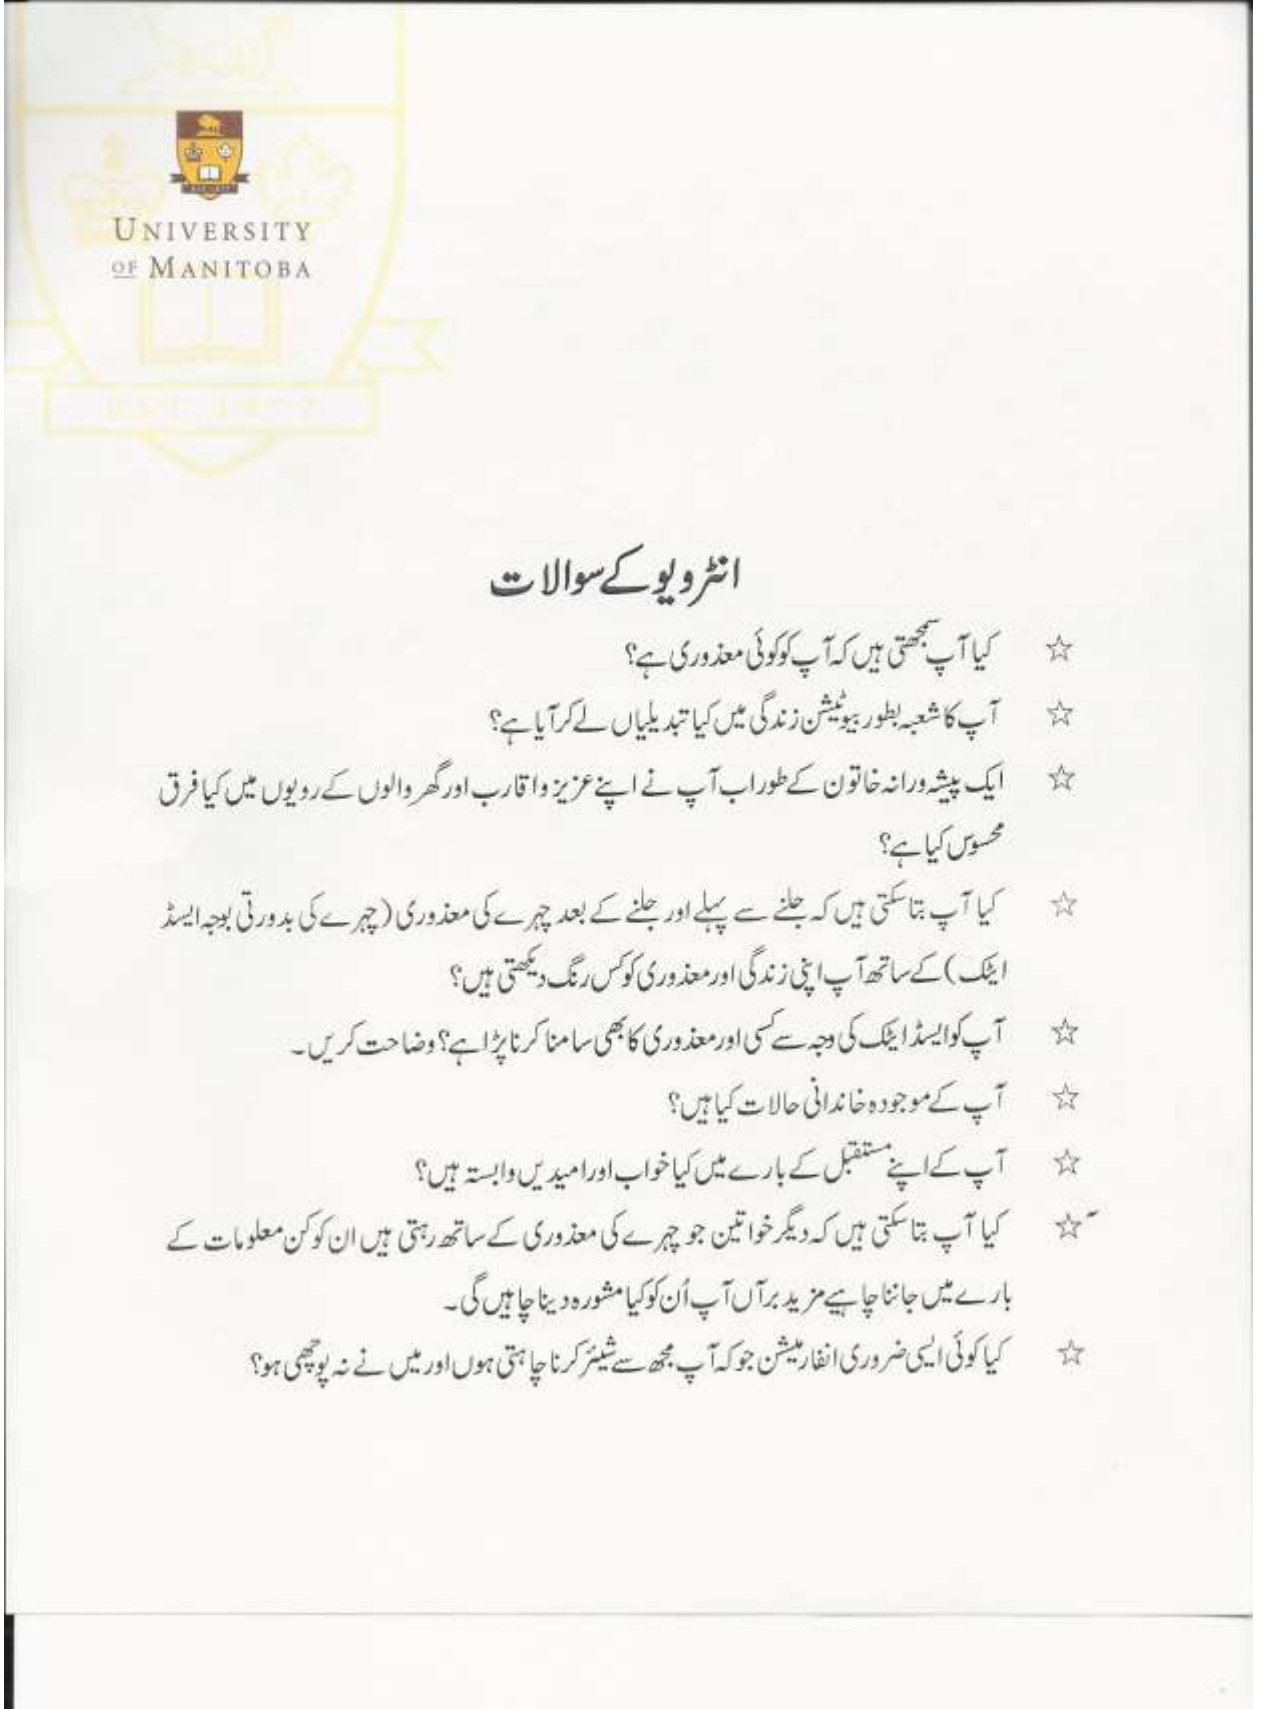 UNIVERSITY
OF MANITOBA
انٹرویو کے سوالات
☆ کیا آپ سمجھتی ہیں کہ آپ کو کوئی معذوری ہے؟
☆ آپ کا شعبہ بطور بیوٹیشن زندگی میں کیا تبدیلیاں لے کر آیا ہے؟
☆ ایک پیشہ ورانہ خاتون کے طور اب آپ نے اپنے عزیز و اقارب اور گھر والوں کے رویوں میں کیا فرق
محسوس کیا ہے؟
☆ کیا آپ بتا سکتی ہیں کہ جلنے سے پہلے اور جلنے کے بعد چہرے کی معذوری (چہرے کی بدورتی بوجہ ایسڈ
اٹیک) کے ساتھ آپ اپنی زندگی اور معذوری کو کس رنگ دیکھتی ہیں؟
☆ آپ کو ایسڈ اٹیک کی وجہ سے کسی اور معذوری کا بھی سامنا کرنا پڑا ہے؟ وضاحت کریں۔
☆ آپ کے موجودہ خاندانی حالات کیا ہیں؟
☆ آپ کے اپنے مستقبل کے بارے میں کیا خواب اور امیدیں وابستہ ہیں؟
☆ کیا آپ بتا سکتی ہیں کہ دیگر خواتین جو چہرے کی معذوری کے ساتھ رہتی ہیں ان کو کن معلومات کے
بارے میں جاننا چاہیے مزید برآں آپ اُن کو کیا مشورہ دینا چاہیں گی۔
☆ کیا کوئی ایسی ضروری انفارمیشن جو کہ آپ مجھ سے شیئر کرنا چاہتی ہوں اور میں نے نہ پوچھی ہو؟